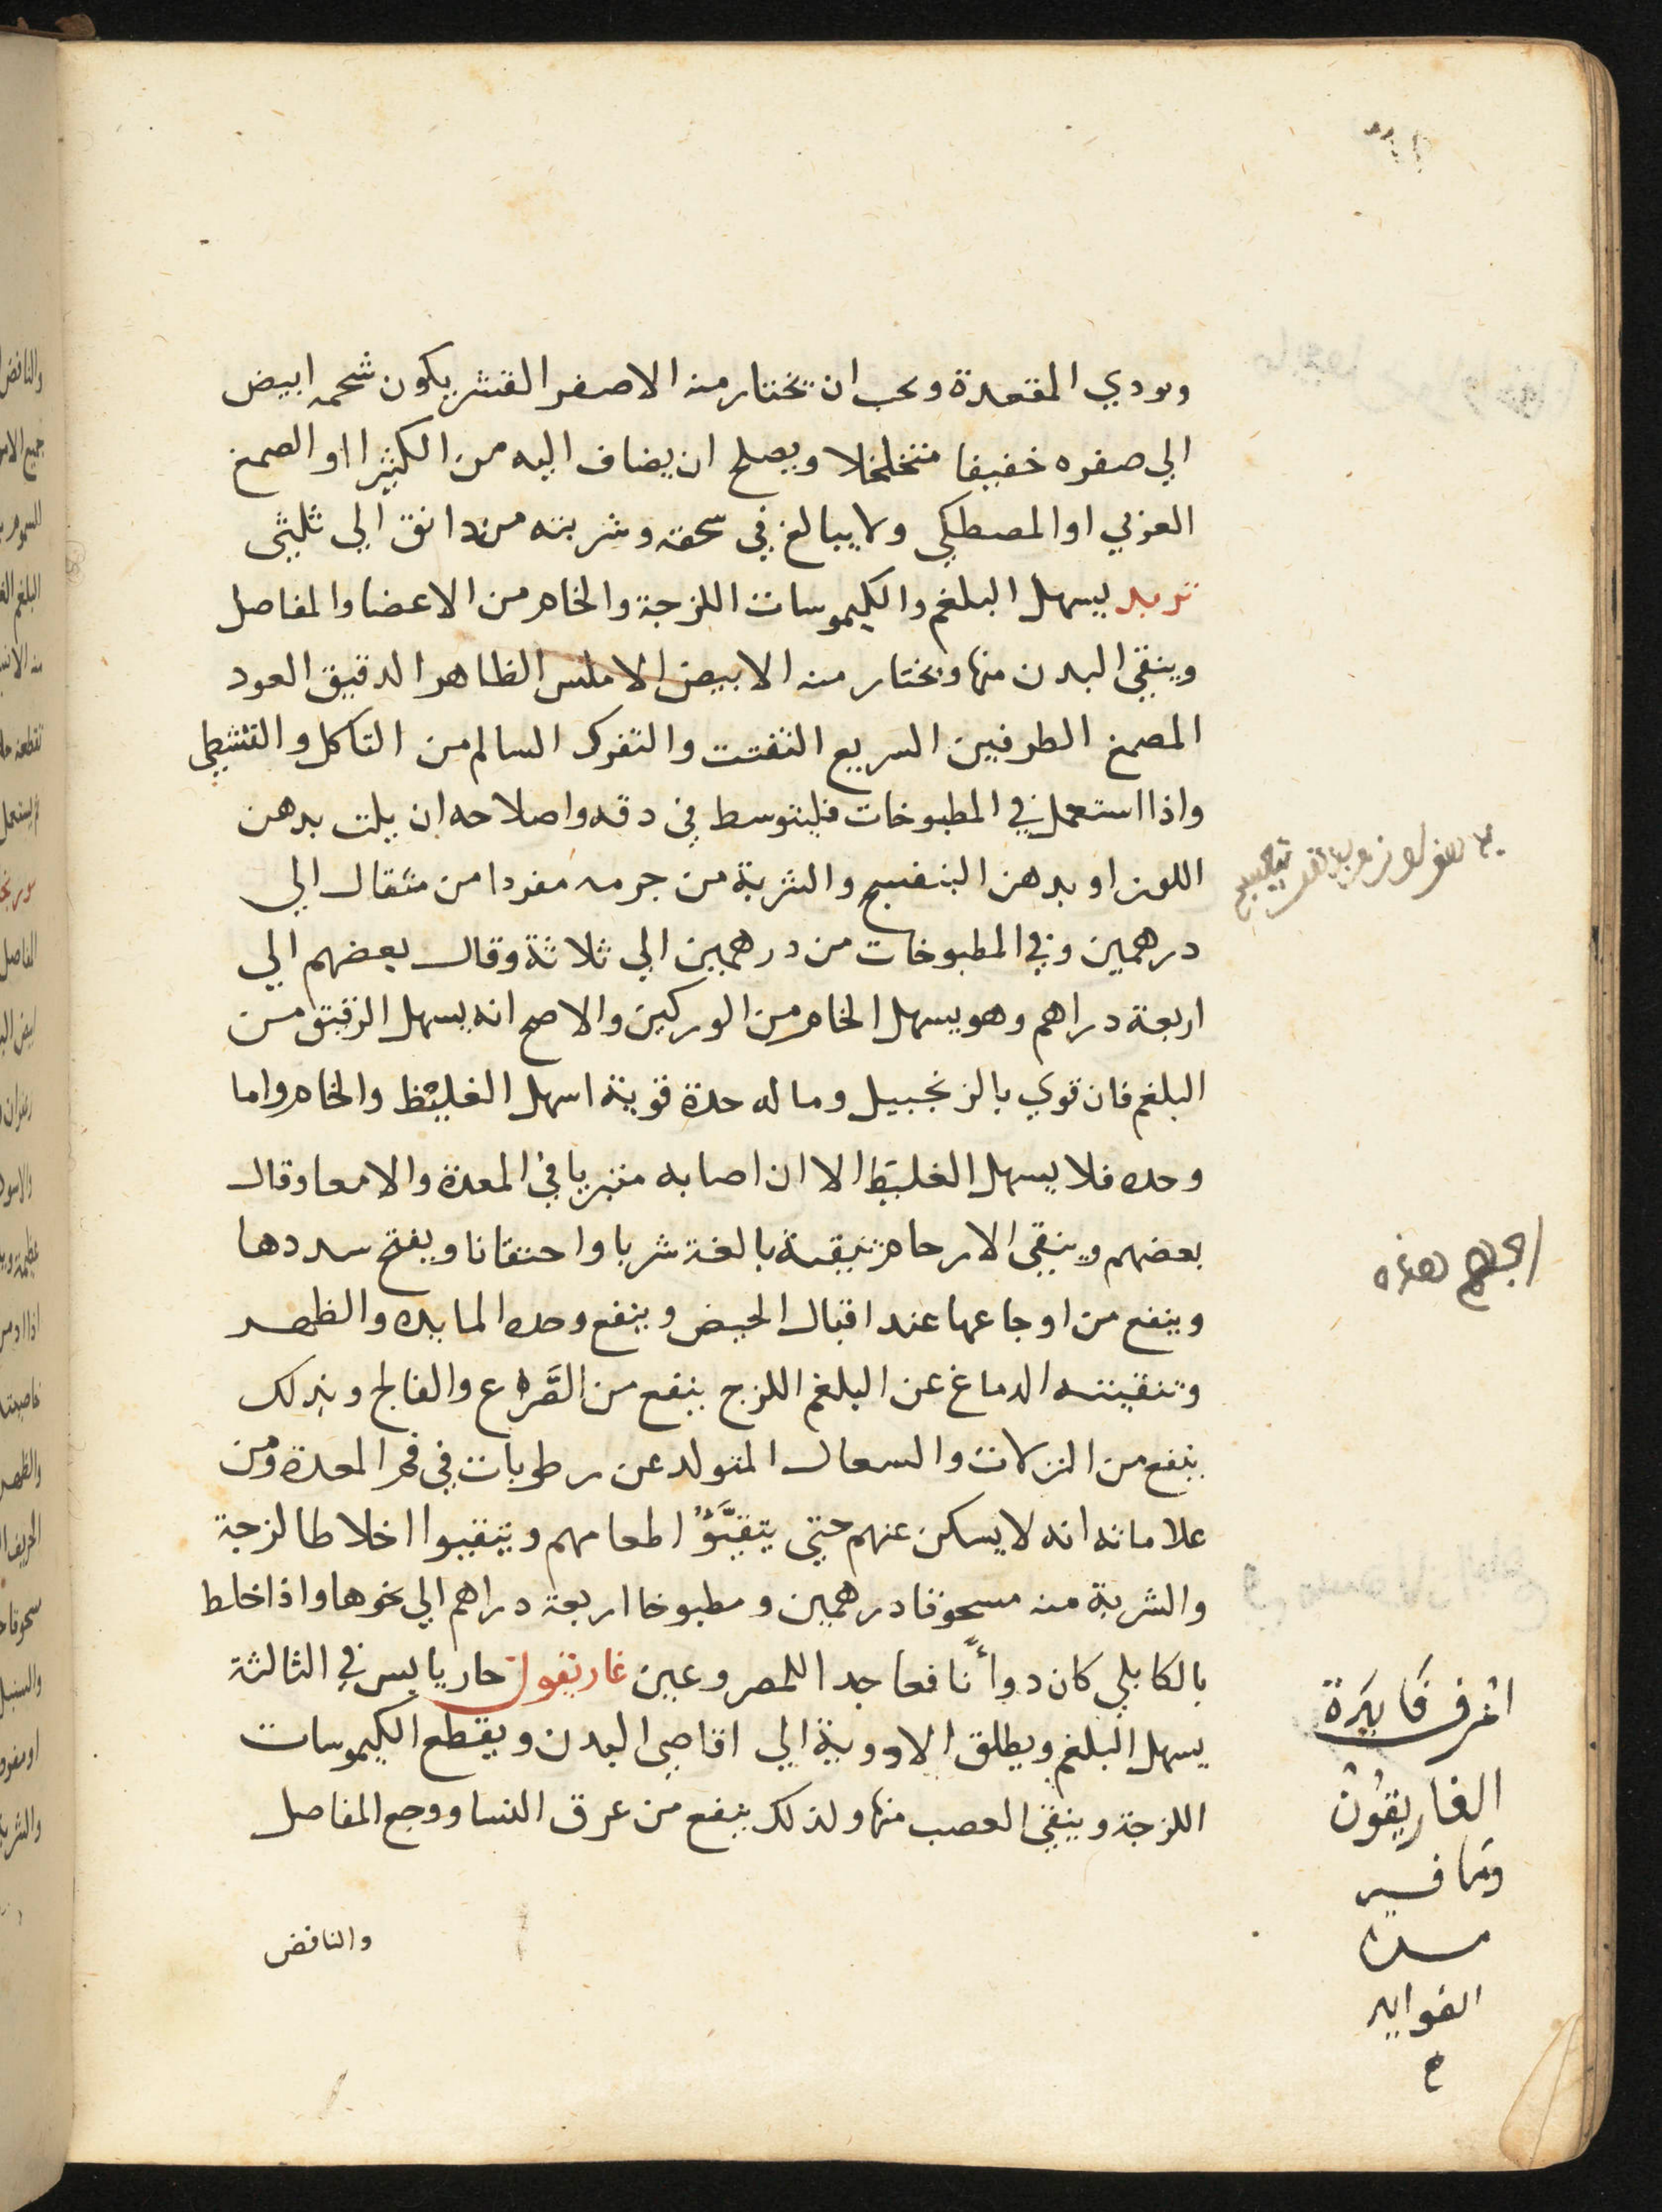 ويودي المقعدة ويجب ان تختار منه الاصفر القشر يكون شحمه ابيض
الي صفره خفيفا متخلخلا ويصلح ان يضاف اليه من الكثيرا او الصمغ
العزبي او المصطكي ولا يبالغ في سحقه وشربته من دانق الي ثلثي
تربد يسهل البلغم والكيموسات اللزجة والخام من الاعضا والمفاصل
وينقي البدن منها ويختار منه الابيض الاملس الظاهر الدقيق العود
المصمغ الطرفين السريع التفتت والتفرك السالم من التاكل والتشطي
واذا استعمل في المطبوخات فليتوسط في دقه واصلاحه ان يلت بدهن
اللوز او بدهن البنفسج والشربة من جرمه مفردا من مثقال الي
درهمين وفي المطبوخات من درهمين الي ثلاثة وقال بعضهم الي
اربعة دراهم وهو يسهل الخام من الوركين والاصح انه يسهل الرقيق من
البلغم فان قوي بالزنجبيل وما له حدة قوية اسهل الغليظ والخام واما
وحده فلا يسهل الغليظ الا ان اصابه متبريا في المعدة والامعا وقال
بعضهم وينقي الارحام تنقية بالغة شربا واحتقانا ويفتح سددها
وينفع من اوجاعها عند اقبال الحيض وينفع وحده المابده والظهر
وتنقيته الدماغ عن البلغم اللزج ينفع من الصَّرع والفالج وبذلك
ينفع من النزلات والسعال المتولد عن رطوبات في فم المعدة ومن
علاماته انه لا يسكن عنهم حتي يتقيَّؤُا طعامهم ويتقيوا اخلاطا لزجة
والشربة منه مسحوقا درهمين ومطبوخا اربعة دراهم الي نحوها واذا خلط
بالكابلي كان دواً نافعا جدا للمصروعين غاريقون حار يابس في الثالثة
يسهل البلغم ويطلق الاودوية الي اقاصي البدن ويقطع الكيموسات
اللزجة وينقي العصب منها ولذلك ينفع من عرق النسا ووجع المفاصل
والنافض
اعرف فَايدَة
الغاريقُونْ
وما فيه
من
الفوايد